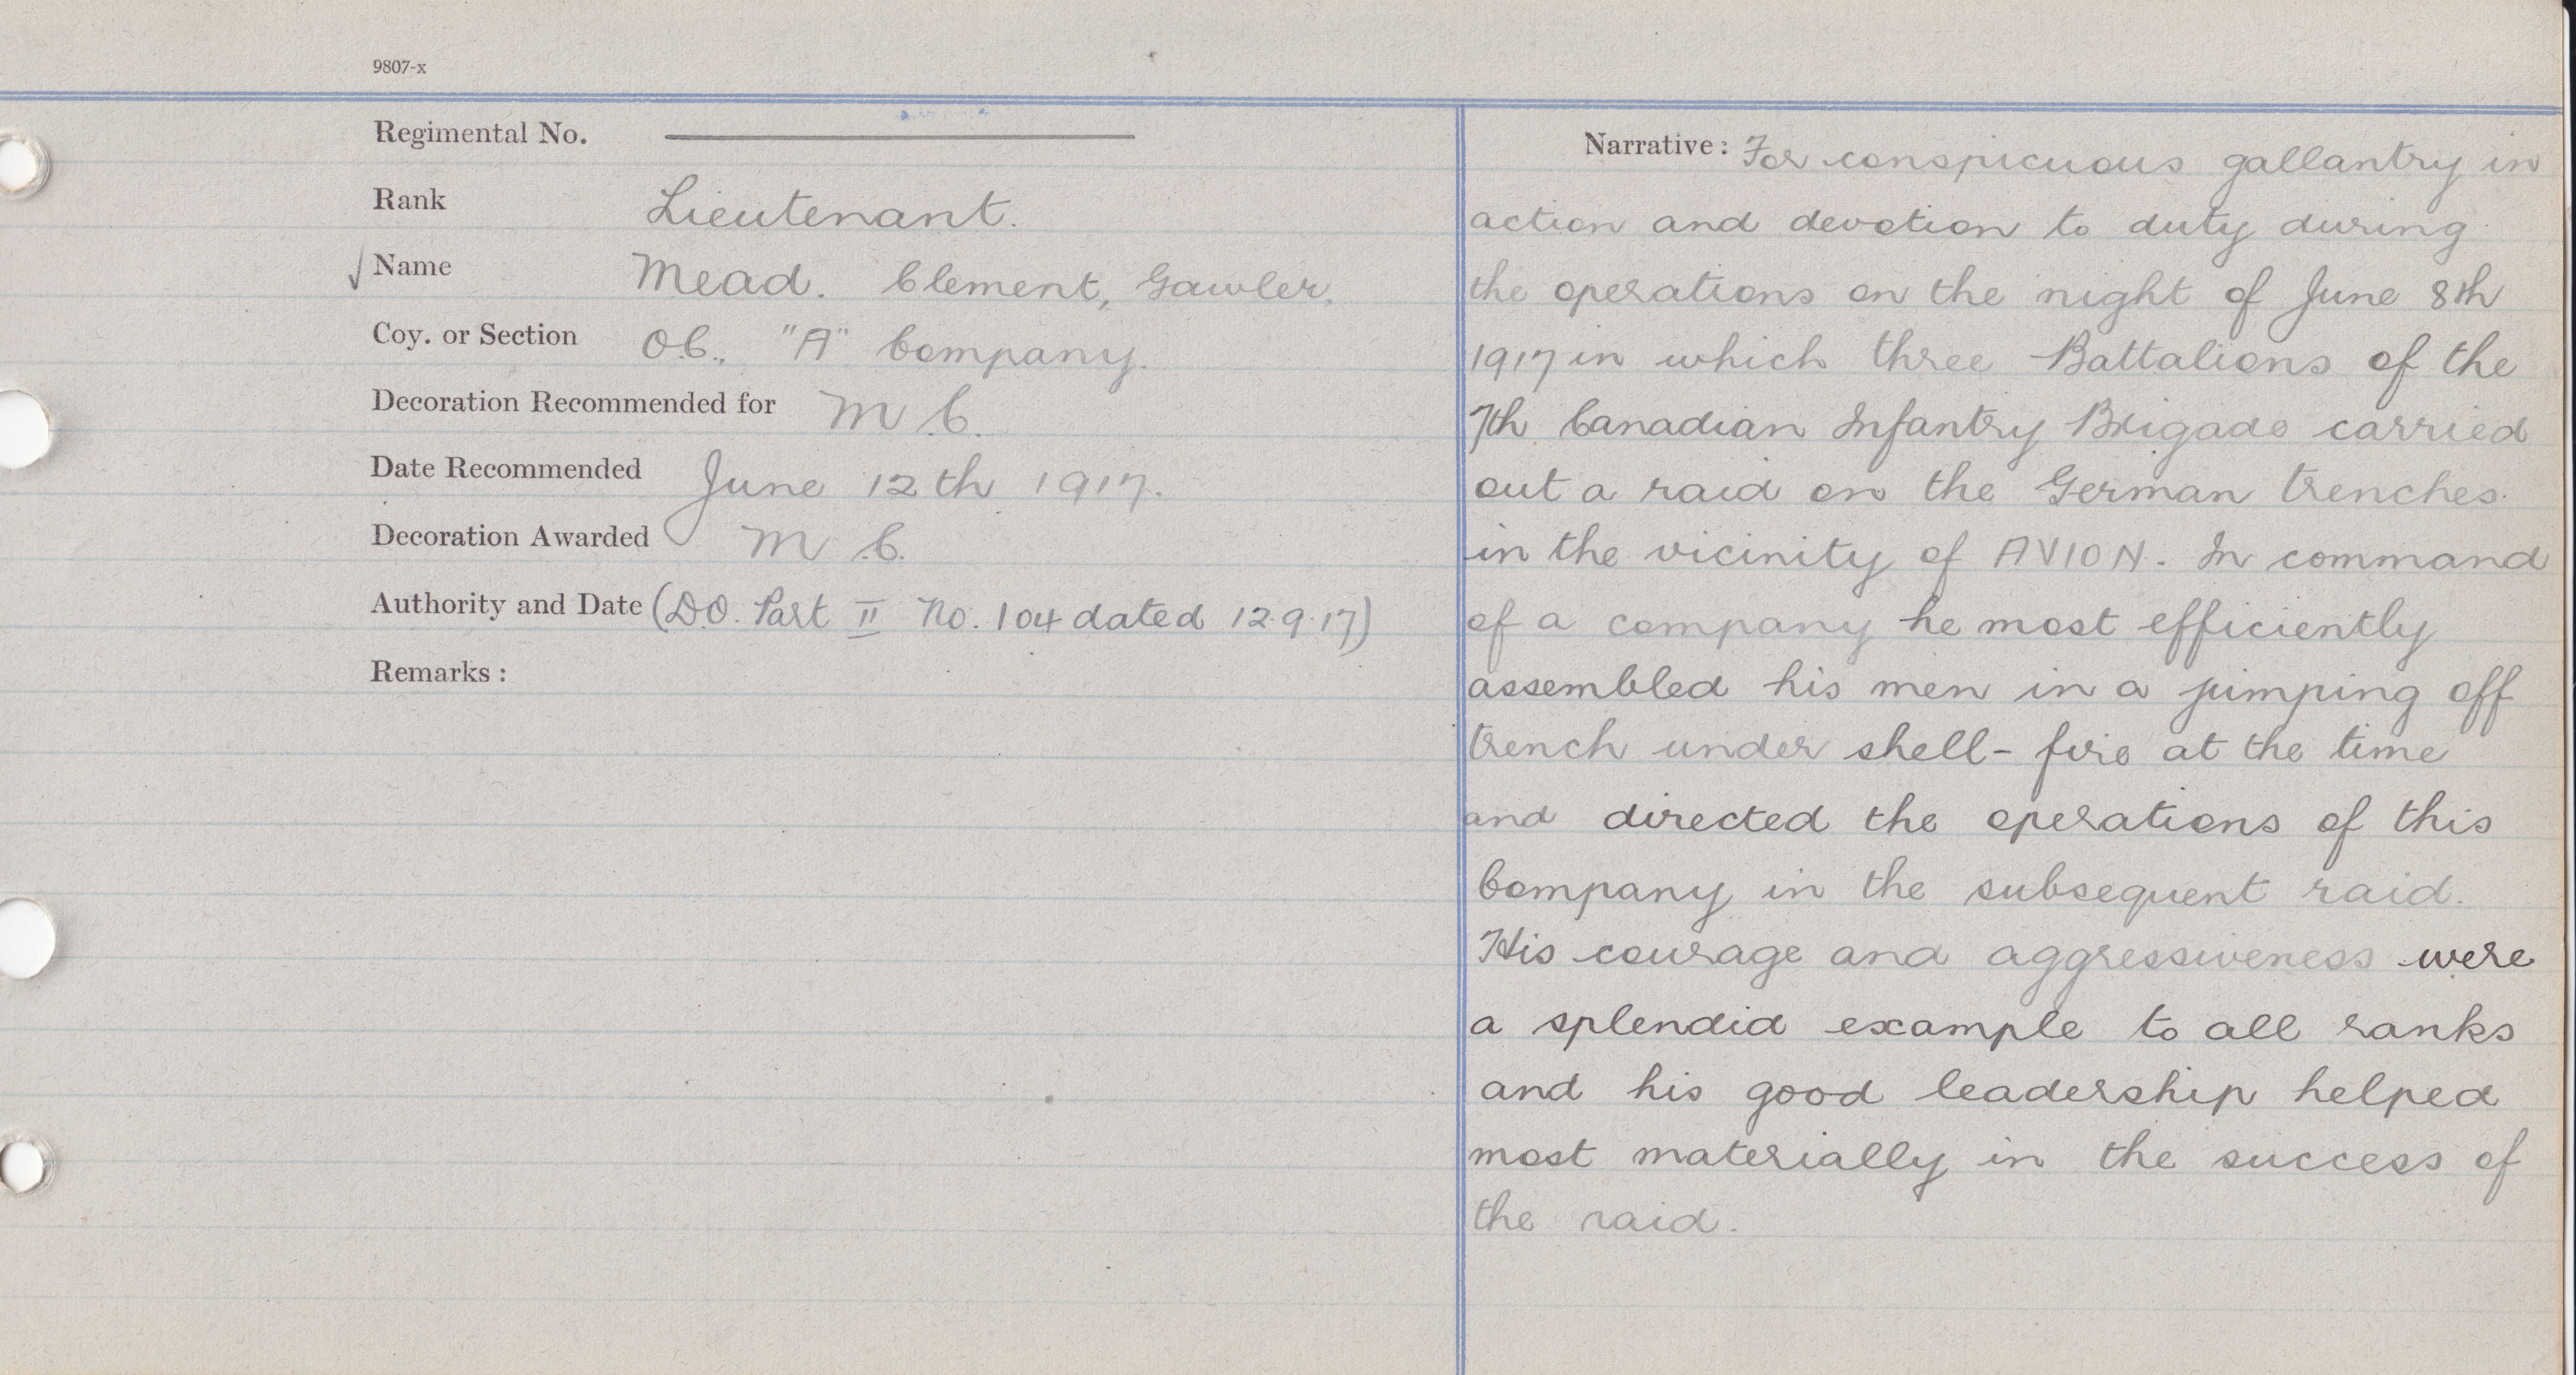 9807-x
Regimental No. ————
Rank Lieutenant.
√ Name Mead. Clement, Gawler.
Coy. or Section O.C., "A" Company.
Decoration Recommended for M.C.
Date Recommended June 12th 1917.
Decoration Awarded M.C.
Authority and Date (D.O. Part II No. 104 dated 12.9.17)
Remarks :
Narrative : For conspicuous gallantry in
action and devotion to duty during
the operations on the night of June 8th
1917 in which three Battalions of the
7th Canadian Infantry Brigade carried
out a raid on the German trenches
in the vicinity of AVION. In command
of a company he most efficiently
assembled his men in a jumping off
trench under shell-fire at the time
and directed the operations of this
Company in the subsequent raid.
His courage and aggressiveness were
a splendid example to all ranks
and his good leadership helped
most materially in the success of
the raid.